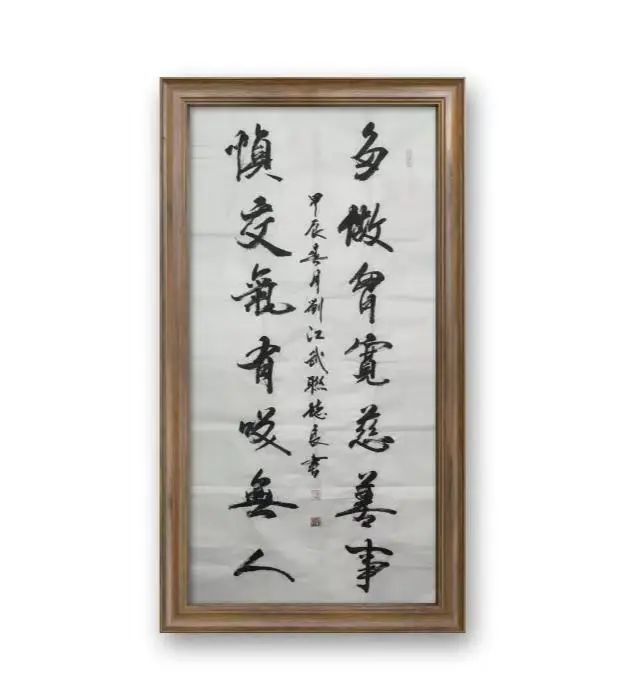 多做胷寬慈善事
甲辰春月劉江武聯德良書
慎交氣有無人